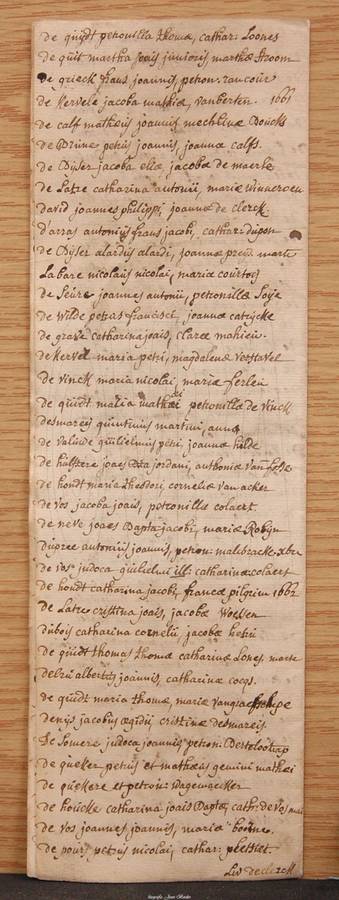 de quÿdt petronilla thomæ, cathar: Loones
de quit martha joais junioris marthæ Stroom
de grieck frans joannis, petron. rancour
de Kervele jacoba mathiæ, vanberten. 1661
de calf matheus joannis mechlinæ Bouck
de Brune petrus joannis, joannæ calfs.
de Bÿser jacoba eliæ, jacobæ de maerle
de Latre catharina antonii, mariæ
david joannes philippi, joannæ de clerck.
d'arras antonius frans jacobi, cathar: dupon
de Bÿser alardus alardi, joannæ marti
La bare nicolaus nicolai, mariæ courtois
de Seure joannes antonii, petronillæ Soije
de Wilde petrus francisci, joannæ catrÿcke
de grave catharina joais, claræ mahieu.
de Kervel maria petri, magdalenæ Vostavel
de vinck maria nicolai, mariæ ferlein
de quidt maria mathæi petronillæ de vinck
desmareis quintinus martini, annæ
de valuide guilielmus petri, joannæ hilde
de hulstere joaes Bta jordani, anthoniæ van
de hondt maria theodori, corneliæ van acker
de vos jacoba joais, petronillæ colaert.
de neve joaes Bapta jacobi, mariæ Robÿn
dupree antonius joannis, petron: malebrancke
de vos judoca guilielmi ill: catharinæ colaert
de hondt catharina jacobi, francæ pilgrim 1662
de Latre cristina joais, jacobæ Woessen
dubois catharina cornelii, jacobæ
de quidt thomas thomæ catharinæ Lones, marte
albertus joannis, catharinæ cocqs.
de quidt maria thomæ, mariæ
denijs jacobus ægidii cristinæ desmareis
de Somere judoca joannis petron: Bertelootrap
de queker petrus et matheus gemini mathei
de quekere et petron: Wagemaeker
de houcke catharina joais Bapta, cath: de Vos
de vos joannes joannis, mariæ bouve.
de pours petrus nicolai, cathar: pleisier
Liv de clerck